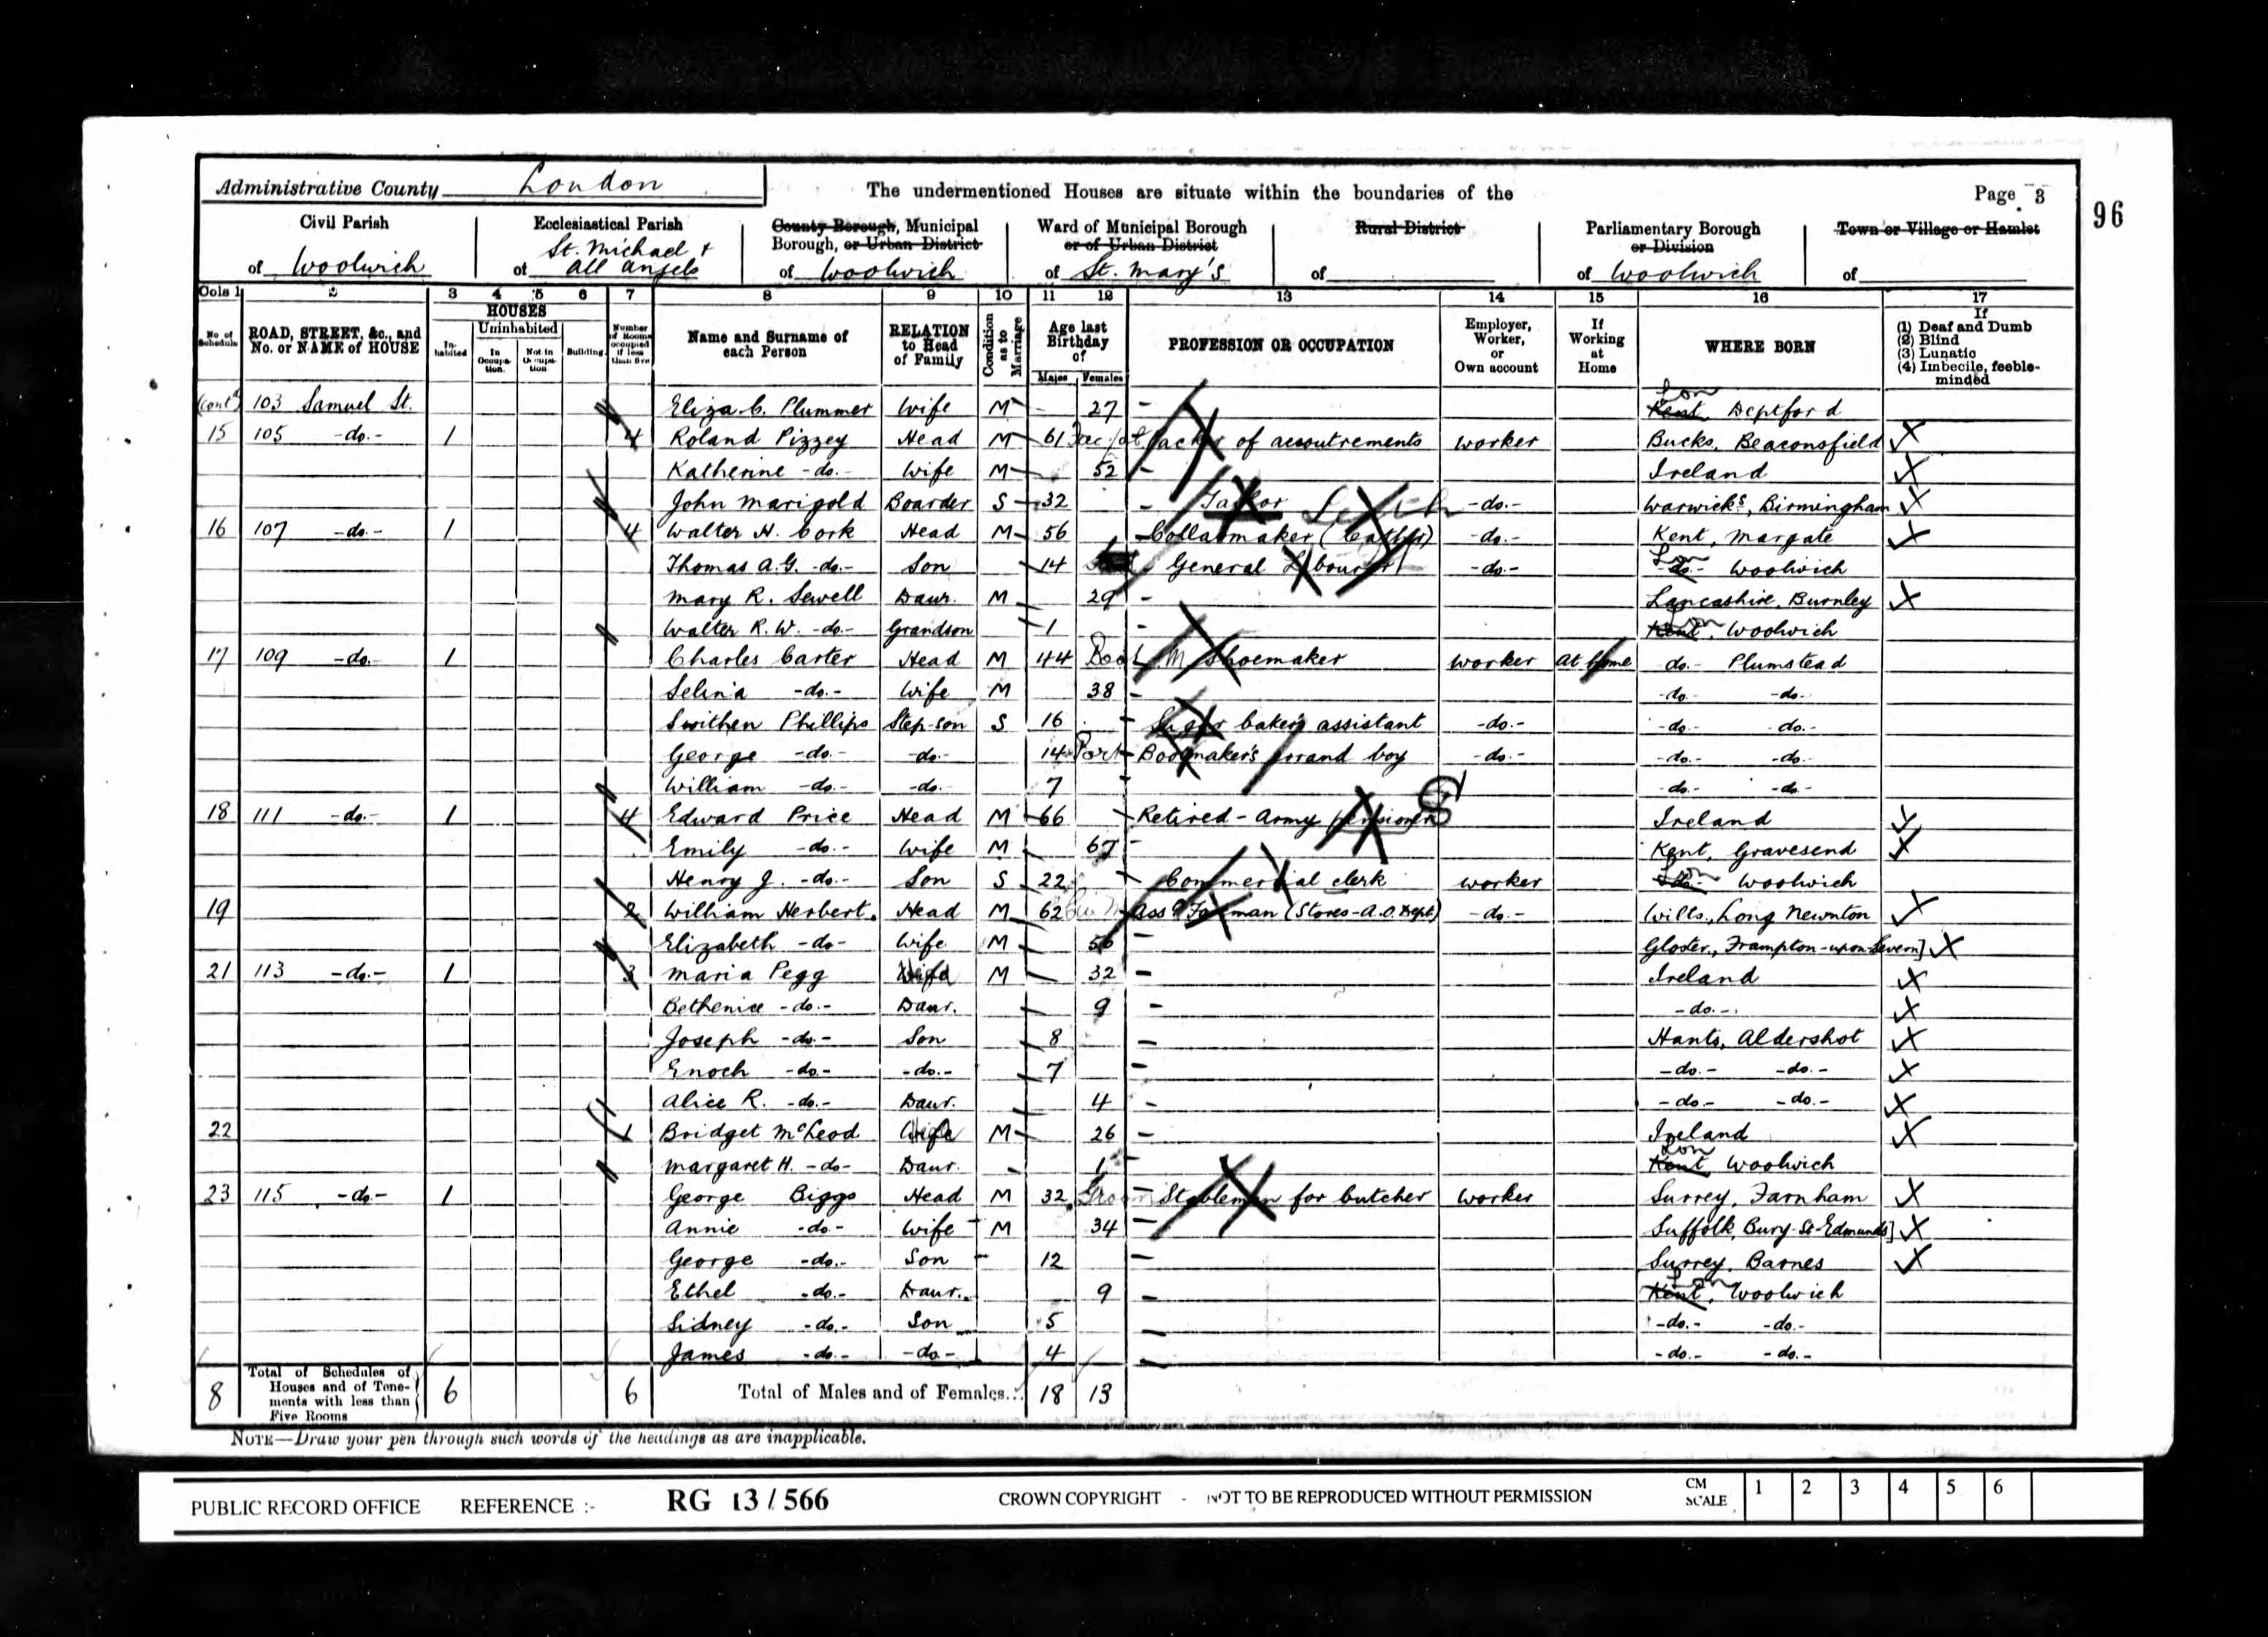 Administrative County London
The undermentioned Houses are situate within the boundaries of the
Page 3
96
Civil Parish of Woolwich
Ecclesiastical Parish of St. Michael & All Angels
County Borough, Municipal Borough, or Urban District of Woolwich
Ward of Municipal Borough or of Urban District of St. Mary's
Rural District of
Parliamentary Borough or Division of Woolwich
Town or Village or Hamlet of
Cols 1 2 3 4 5 6 7 8 9 10 11 12 13 14 15 16 17
No. of Schedule
ROAD, STREET, &c., and No. or NAME of HOUSE
HOUSES
Inhabited
Uninhabited
In Occupation.
Not in Occupation
Building
Number of Rooms occupied if less than five
Name and Surname of each Person
RELATION to Head of Family
Condition as to Marriage
Age last Birthday of
Males Females
PROFESSION OR OCCUPATION
Employer, Worker, or Own account
If Working at Home
WHERE BORN
If
(1) Deaf and Dumb
(2) Blind
(3) Lunatic
(4) Imbecile, feeble-minded
(contd) 103 Samuel St. Eliza C. Plummer Wife M 27 - Kent Lon Deptford
15 105 -do.- 1 4 Roland Pizzey Head M 61 Packer of accoutrements Worker Bucks, Beaconsfield
Katherine -do.- Wife M 52 - Ireland
John Marigold Boarder S 32 - Tailor -do.- Warwicks, Birmingham
16 107 -do.- 1 4 Walter H. Cork Head M 56 Collarmaker (Leather) -do.- Kent, Margate
Thomas A.G. -do.- Son 14 General Labourer -do.- -do.- Lon Woolwich
Mary R. Sewell Daur. M 29 - Lancashire, Burnley
Walter R.W. -do.- Grandson 1 - Kent Lon, Woolwich
17 109 -do.- 1 Charles Carter Head M 44 Boot M Shoemaker Worker At home -do.- Plumstead
Selina -do.- Wife M 38 - -do.- -do.-
Swithen Phillips Step-son S 16 Sugar baker's assistant -do.- -do.- -do.-
George -do.- -do.- 14 Port Bootmaker's errand boy -do.- -do.- -do.-
William -do.- -do.- 7 - -do.- -do.-
18 111 -do.- 1 4 Edward Price Head M 66 Retired - Army pensioner Ireland
Emily -do.- Wife M 67 - Kent, Gravesend
Henry J. -do.- Son S 22 Commercial clerk Worker -do.- Lon Woolwich
19 2 William Herbert Head M 62 Asst Foreman (Stores-A.O. Dept) -do.- Wilts, Long Newnton
Elizabeth -do- Wife M 56 - Gloster, Frampton-upon-Severn]
21 113 -do.- 1 3 Maria Pegg Wife M 32 - Ireland
Bethenice -do.- Daur. 9 - -do.-
Joseph -do.- Son 8 - Hants, Aldershot
Enoch -do.- -do.- 7 - -do.- -do.-
Alice R. -do.- Daur. 4 - -do.- -do.-
22 1 Bridget McLeod Wife M 26 - Ireland
Margaret H. -do- Daur. 1 - Kent Lon Woolwich
23 115 -do- 1 George Biggs Head M 32 Groom Stableman for butcher Worker Surrey, Farnham
Annie -do- Wife M 34 - Suffolk, Bury-St-Edmunds]
George -do.- Son 12 - Surrey, Barnes
Ethel -do.- Daur. 9 - Kent Lon, Woolwich
Sidney -do.- Son 5 - -do.- -do.-
James -do.- -do- 4 - -do.- -do.-
8 Total of Schedules of Houses and of Tenements with less than Five Rooms 6 6 Total of Males and of Females... 18 13
NOTE—Draw your pen through such words of the headings as are inapplicable.
PUBLIC RECORD OFFICE REFERENCE :- RG 13/566 CROWN COPYRIGHT - NOT TO BE REPRODUCED WITHOUT PERMISSION CM SCALE 1 2 3 4 5 6